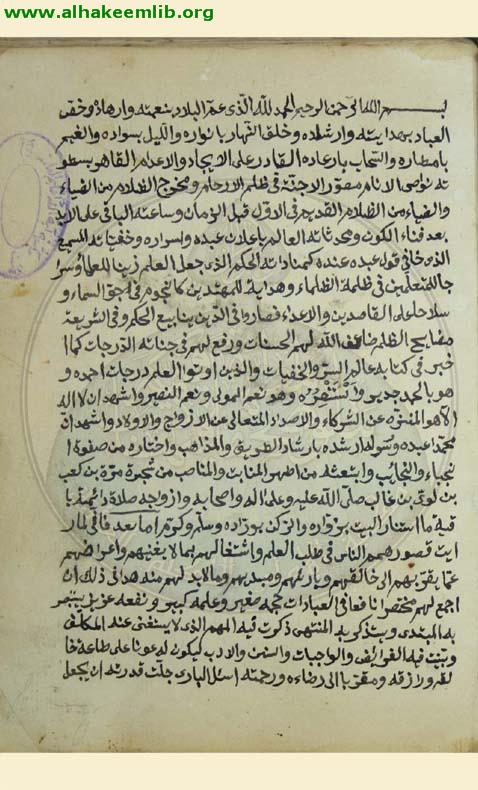 www.alhakeemlib.org
بسم الله الرحمن الرحيم الحمد لله الذى عمّر البلاد بنعمته وارهاده وخص
العباد بهدايته وارشاده وخلق النهار بانواره والليل بسواده والغيم
بامطاره والسحاب بارعاده القادر على الايجاد والاعدام القاهر بسطو
ته نواصى الانام مصوّر الاجنّة فى ظلم الارحام ومخرج الظلام من الضياء
والضياء من الظلام القديم فى الاوّل قبل الزمان وساعته الباقى على الابد
بعد فناء الكون ومحدثاته العالم باعلان عبده واسراره وخفياته السميع
الذى خافى قول عبده عنده كمناداته الحكم الذى جعل العلم زينا للعلماء وسر
جا للمتعلمين فى ظلمة الظلماء وهداية للمهتدين كالنجوم فى افق السماء و
سلاحا على القاصدين والاعداء فصاروا فى الدّين ينابيع الحكم وفى الشريعة
مفاتيح الظلم ضاعف الله لهم الحسنات ورفع لهم فى جناته الدّرجات كما ا
خبر فى كتابه عالم السرّ والخفيات والذين اوتوا العلم درجات احمده و
هو بالحمد جدير واستنصره وهو نعم المولى ونعم النصير واشهد ان لا اله
الاّ هو المنزه عن الشركاء والاضداد المتعالى عن الازواج والاولاد واشهد انّ
محمّدا عبده ورسوله ارشده بارشاد الطريق والمذاهب واختاره من صفوة ا
نجباء والنجايب وابتعثه من اطهر المنابت والمناصب من شجرة مرّة بن كعب
بن لوىّ بن غالب صلّى الله عليه وعلى اله واصحابه وازواجه صلاة دائمة با
قية ما استنار البيت بزوّاره والرّكن بورّاده وسلّم وكرّم اما بعد فانى لما ر
ايت قصور همم الناس فى طلب العلم واشتغالهم بما لا يغنيهم واعراضهم
عمّا يقرّبهم الى خالقهم وباريهم ومبديهم وما لابد لهم منه هدانى ذلك ان
اجمع لهم مختصرا نافعا فى العبادات حجمه صغير وعلمه كبير ونفعه عزيز يتبصر
به المبتدى ويتذكر به المنتهى ذكرت فيه المهم الذى لا يستغنى عنه المكلّف
وبيّنت فيه الفرائض والواجبات والسنن والادب ليكون له عونا على طاعة خا
لقه ورازقه ومقربا الى رضاءه ورحمته اسئل البارى جلّت قدرته ان يجعل